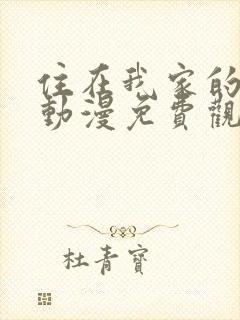 住在我家的
動漫免費觀
杜青寶